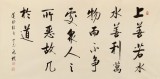 上善若水
水善利萬
物而不爭
處眾人之
所惡故几
於道